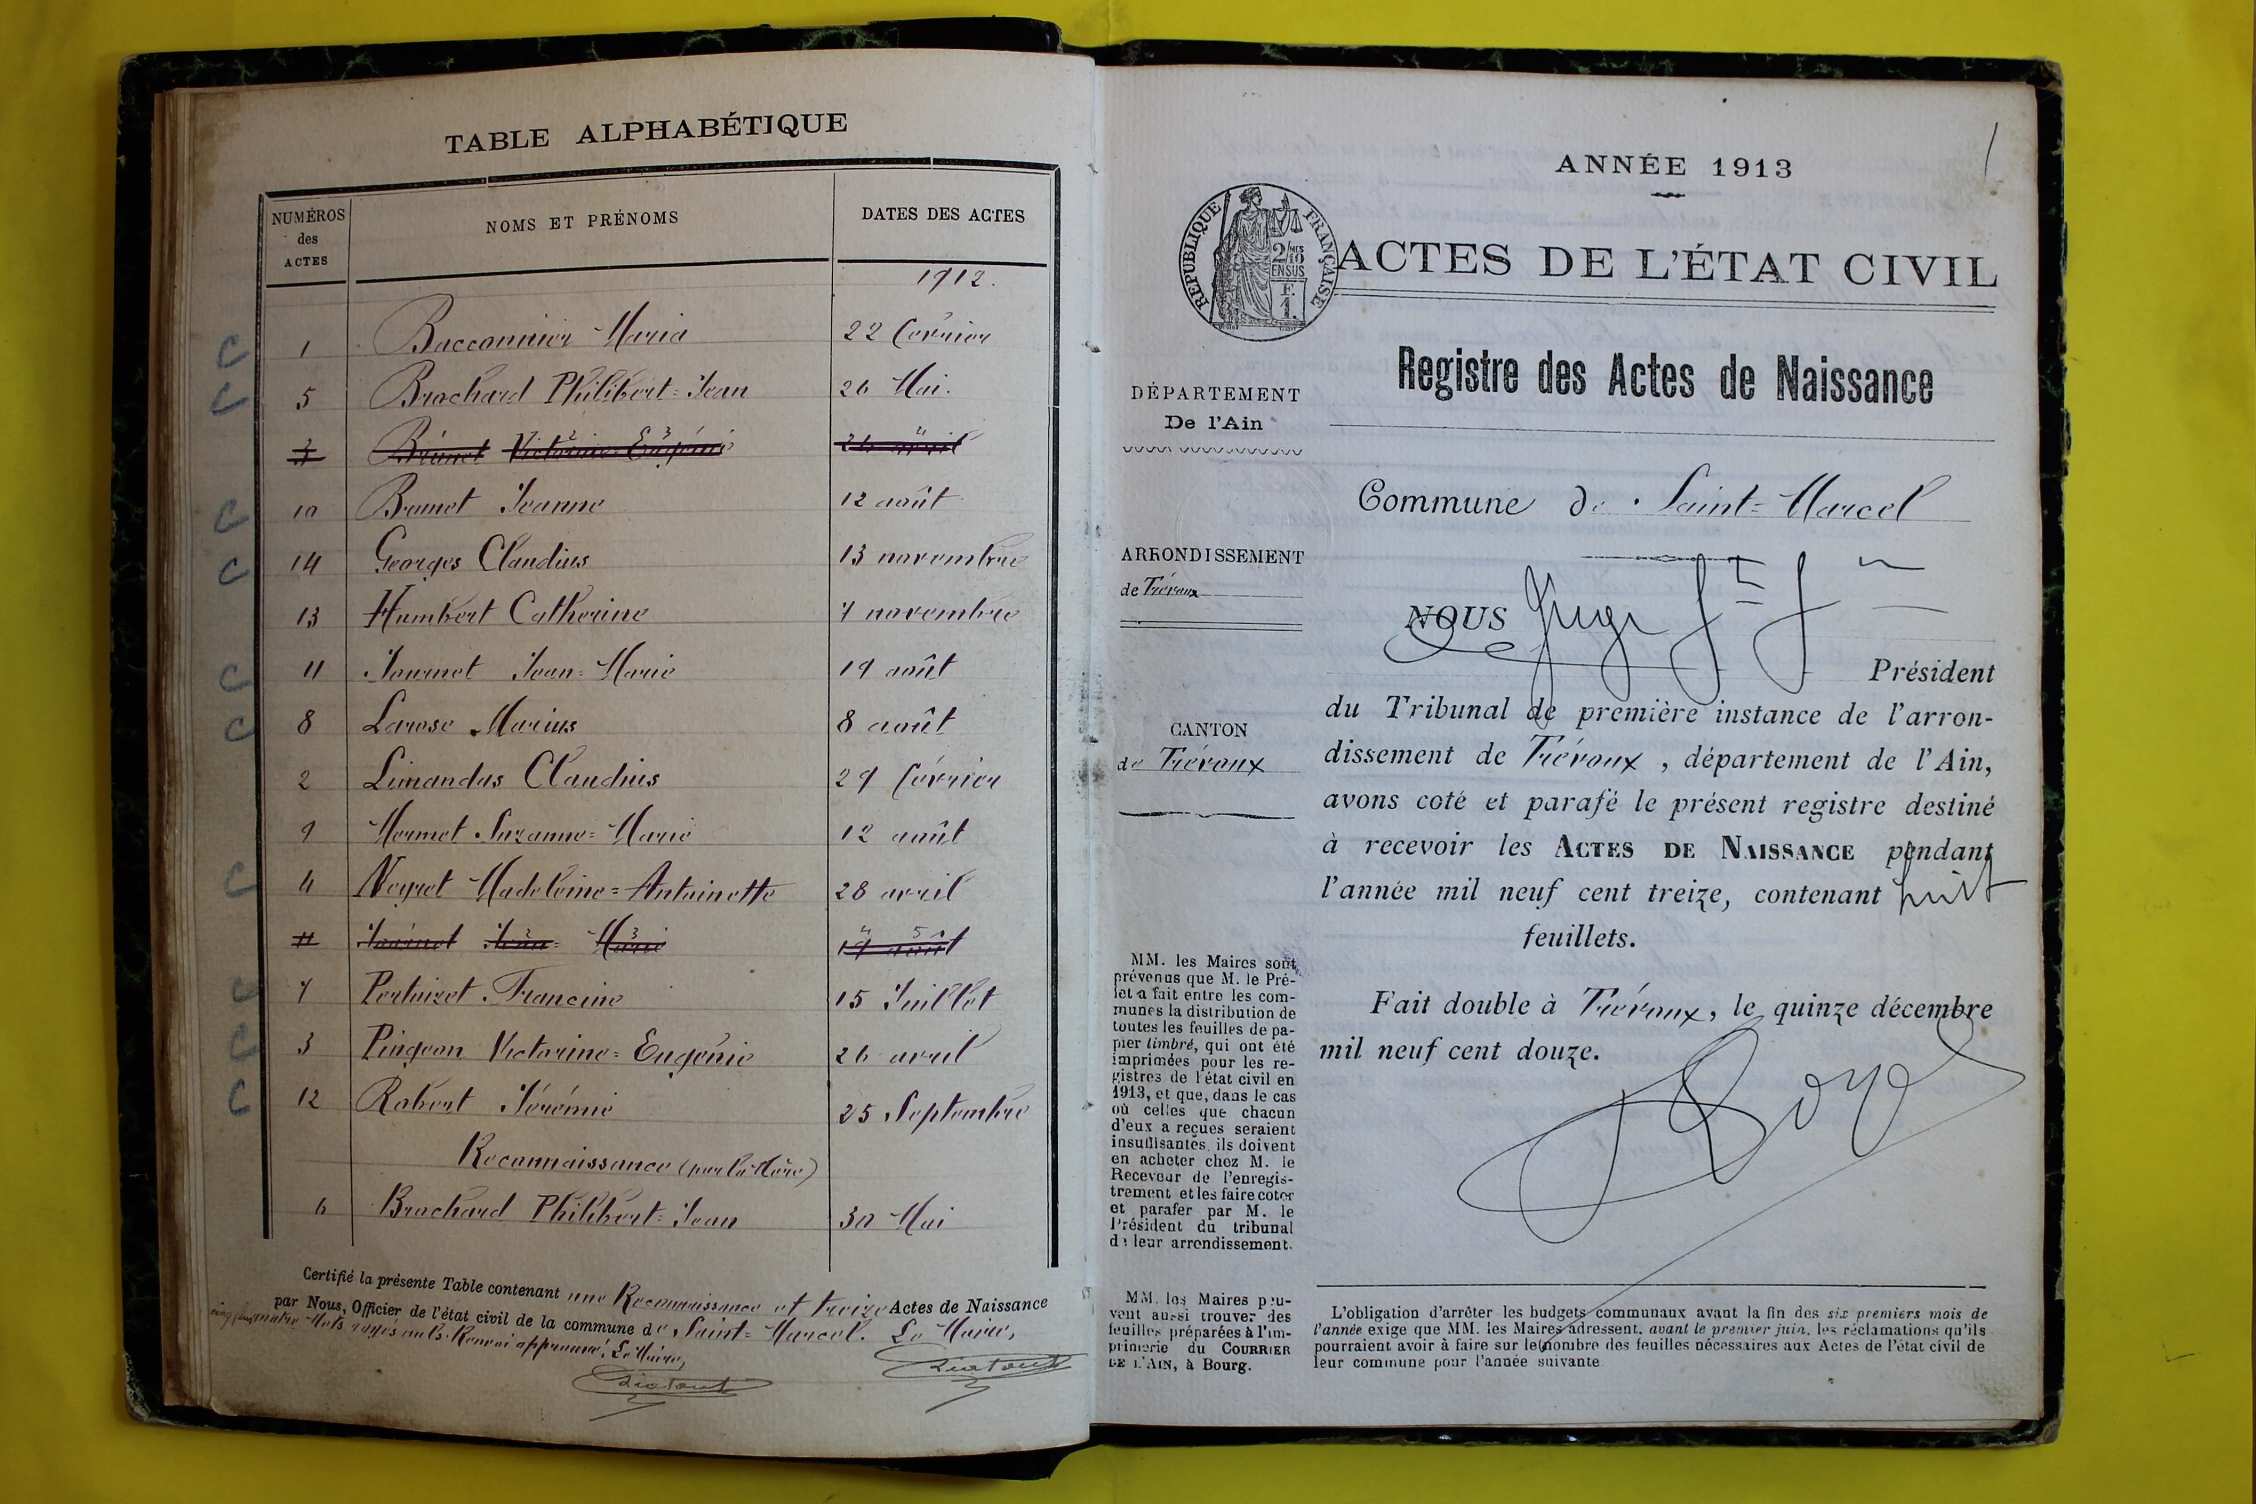 TABLE ALPHABÉTIQUE
NUMÉROS des ACTES NOMS ET PRÉNOMS DATES DES ACTES
1912.
1 Bacconnier Maria 22 février
5 Brochard Philibert=Jean 26 Mai.
3 Brunet Victorine=Eugénie 26 avril
10 Brunet Jeanne 12 août
14 Georges Claudius 13 novembre
13 Humbert Catherine 7 novembre
11 Journet Jean=Marie 19 août
8 Larose Marius 8 août
2 Limandas Claudius 29 février
9 Mermet Suzanne=Marie 12 août
4 Neyret Madeleine=Antoinette 28 avril
11 Journet Jean=Marie 19 août
7 Pertuizet Francine 15 Juillet
3 Pingeon Victorine=Eugénie 26 avril
12 Robert Jérémie 25 Septembre
Reconnaissance (par la Mère)
6 Brochard Philibert=Jean 30 Mai
Certifié la présente Table contenant une Reconnaissance et treize Actes de Naissance
par Nous, Officier de l'état civil de la commune de Saint=Marcel. Le Maire,
mots rayés nuls. Renvoi approuvé. Le Maire,
1
ANNÉE 1913
RÉPUBLIQUE FRANÇAISE
2/10 MES
EN SUS
F.
1.
ACTES DE L'ÉTAT CIVIL
Registre des Actes de Naissance
DÉPARTEMENT
De l'Ain
Commune de Saint=Marcel
ARRONDISSEMENT
de Trévoux
NOUS Juge
Président
du Tribunal de première instance de l'arron-
dissement de Trévoux, département de l'Ain,
avons coté et parafé le présent registre destiné
à recevoir les ACTES DE NAISSANCE pendant
l'année mil neuf cent treize, contenant huit
feuillets.
Fait double à Trévoux, le quinze décembre
mil neuf cent douze.
CANTON
de Trévoux
MM. les Maires sont
prévenus que M. le Pré-
fet a fait entre les com-
munes la distribution de
toutes les feuilles de pa-
pier timbré, qui ont été
imprimées pour les re-
gistres de l'état civil en
1913, et que, dans le cas
où celles que chacun
d'eux a reçues seraient
insuffisantes, ils doivent
en acheter chez M. le
Receveur de l'enregis-
trement et les faire coter
et parafer par M. le
Président du tribunal
de leur arrondissement.
MM. les Maires peu-
vent aussi trouver des
feuilles préparées à l'im-
primerie du COURRIER
DE L'AIN, à Bourg.
L'obligation d'arrêter les budgets communaux avant la fin des six premiers mois de
l'année exige que MM. les Maires adressent, avant le premier juin, les réclamations qu'ils
pourraient avoir à faire sur le nombre des feuilles nécessaires aux Actes de l'état civil de
leur commune pour l'année suivante